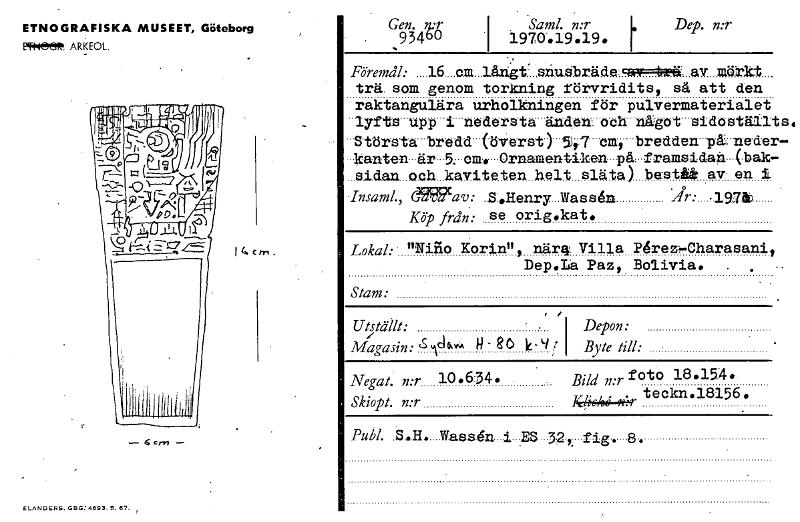 ETNOGRAFISKA MUSEET, Göteborg
ETNOGR. ARKEOL.
14 cm.
— 6 cm —
ELANDERS, GBG. 4693. 5. 67.
Gen. n:r
93460
Saml. n:r
1970.19.19.
Dep. n:r
Föremål: 16 cm långt snusbräde av trä av mörkt
trä som genom torkning förvridits, så att den
raktangulära urholkningen för pulvermaterialet
lyfts upp i nedersta änden och något sidoställts.
Största bredd (överst) 5,7 cm, bredden på neder-
kanten är 5 cm. Ornamentiken på framsidan (bak-
sidan och kaviteten helt släta) består av en i
Insaml., Gåva av: S.Henry Wassén År: 1970
Köp från: se orig.kat.
Lokal: "Niño Korin", nära Villa Pérez-Charasani,
Dep.La Paz, Bolivia.
Stam:
Utställt:
Depon:
Magasin: Sydam H-80 k.4:
Byte till:
Negat. n:r 10.634.
Bild n:r foto 18.154.
Skiopt. n:r
Kliché n:r teckn.18156.
Publ. S.H. Wassén i ES 32, fig. 8.